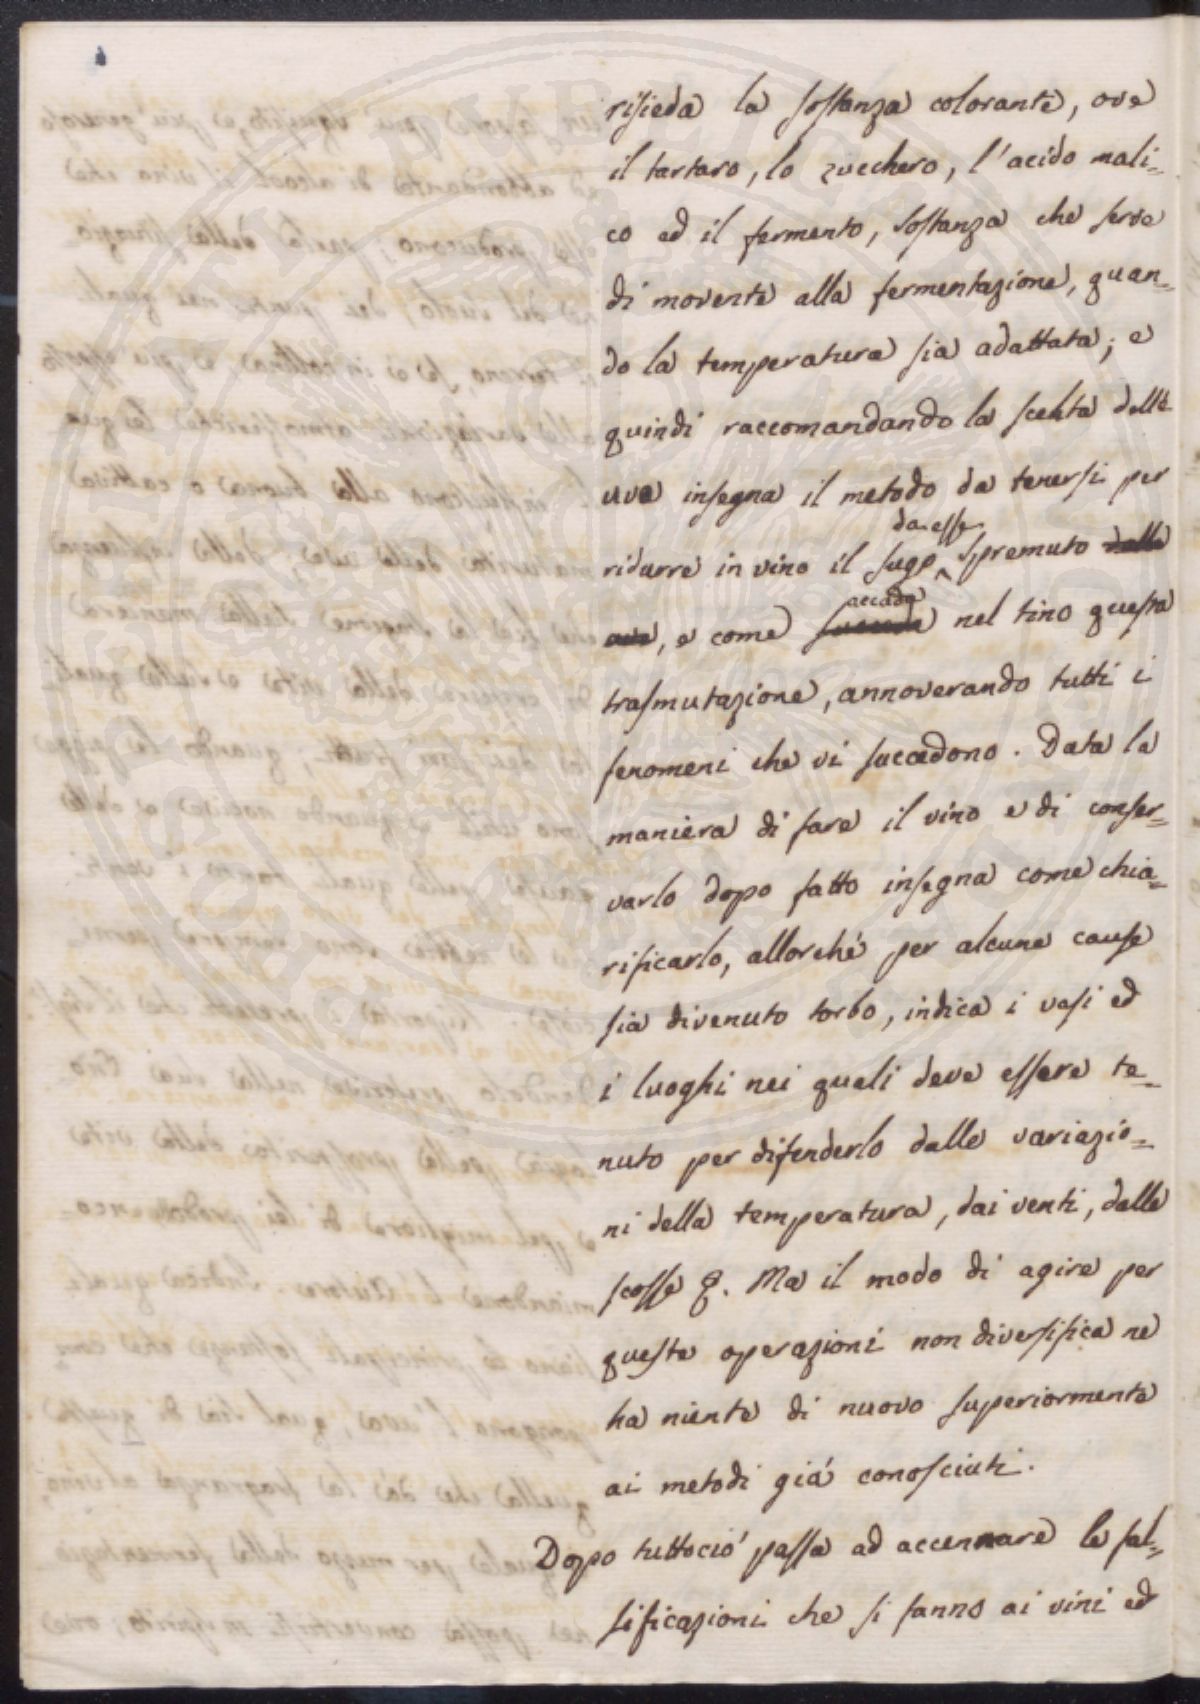 risieda la sostanza colorante, ove
il tartaro, lo zucchero, l'acido mali=
co ed il fermento, sostanza che serve
di movente alla fermentazione, quan=
do la temperatura sia adattata; e
quindi raccomandando la scelta delle
uve insegna il metodo da tenersi per
da esse
ridurre in vino il sugo spremuto dalle
accada
uve, e come succeda nel tino questa
trasmutazione, annoverando tutti i
fenomeni che vi succedono. Data la
maniera di fare il vino e di conser=
varlo dopo fatto insegna come chia=
rificarlo, allorché per alcune cause
sia divenuto torbo, indica i vasi ed
i luoghi nei quali deve essere te=
nuto per difenderlo dalle variazio=
ni della temperatura, dai venti, dalle
scosse &. Ma il modo di agire per
queste operazioni non diversifica ne
ha niente di nuovo superiormente
ai metodi giá conosciuti.
Dopo tuttoció passa ad accennare le fal=
sificazioni che si fanno ai vini ed